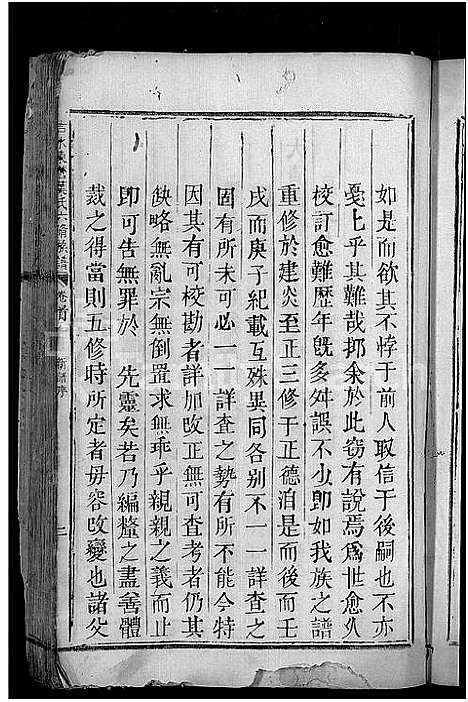 如是而欲其不悖于前人取信于後嗣也不亦
戞戛乎其難哉抑余於此窃有說焉爲世愈久
校訂愈難歷年旣多舛誤不少卽如我族之譜
重修於建炎至正三修于正德洎是而後而壬
戌而庚子紀載互殊異同各别不一一詳查之
固有所未可必一一詳查之勢有所不能今特
因其有可校勘者詳加改正無可查考者仍其
缺略無亂宗無倒置求無乖乎親親之義而止
卽可告無罪於　先靈矣若乃編釐之盡善體
裁之得當則五修時所定者毋容改變也諸父
氏六脩族譜
卷首
新譜序
三